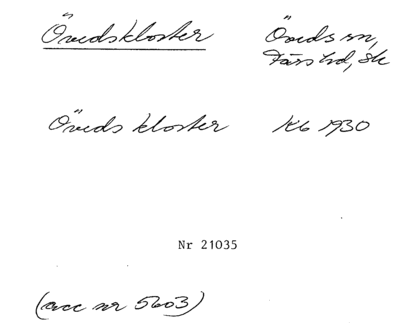 Övedskloster Öveds sn,
Färs hd, Sk
Öveds kloster Kb 1930
Nr 21035
(acc nr 5603)